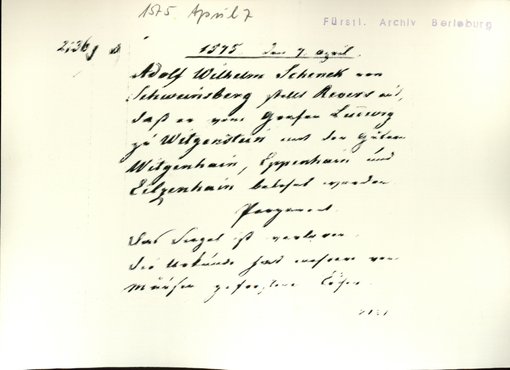 1575. April 7
Fürstl. Archiv Berleburg
1575 den 7. April.
Adolf Wilhelm Schenck von
Schweinsberg stellt Revers aus,
daß er vom Grafen Ludwig
zu Witgenstein mit den Gütern
Witgenhain, Eppenhain und
Eitzenhain belehnt worden
Pergament.
Das Siegel ist verloren.
die Urkunde hat mehrere von
Mäusen gefressene Löcher.